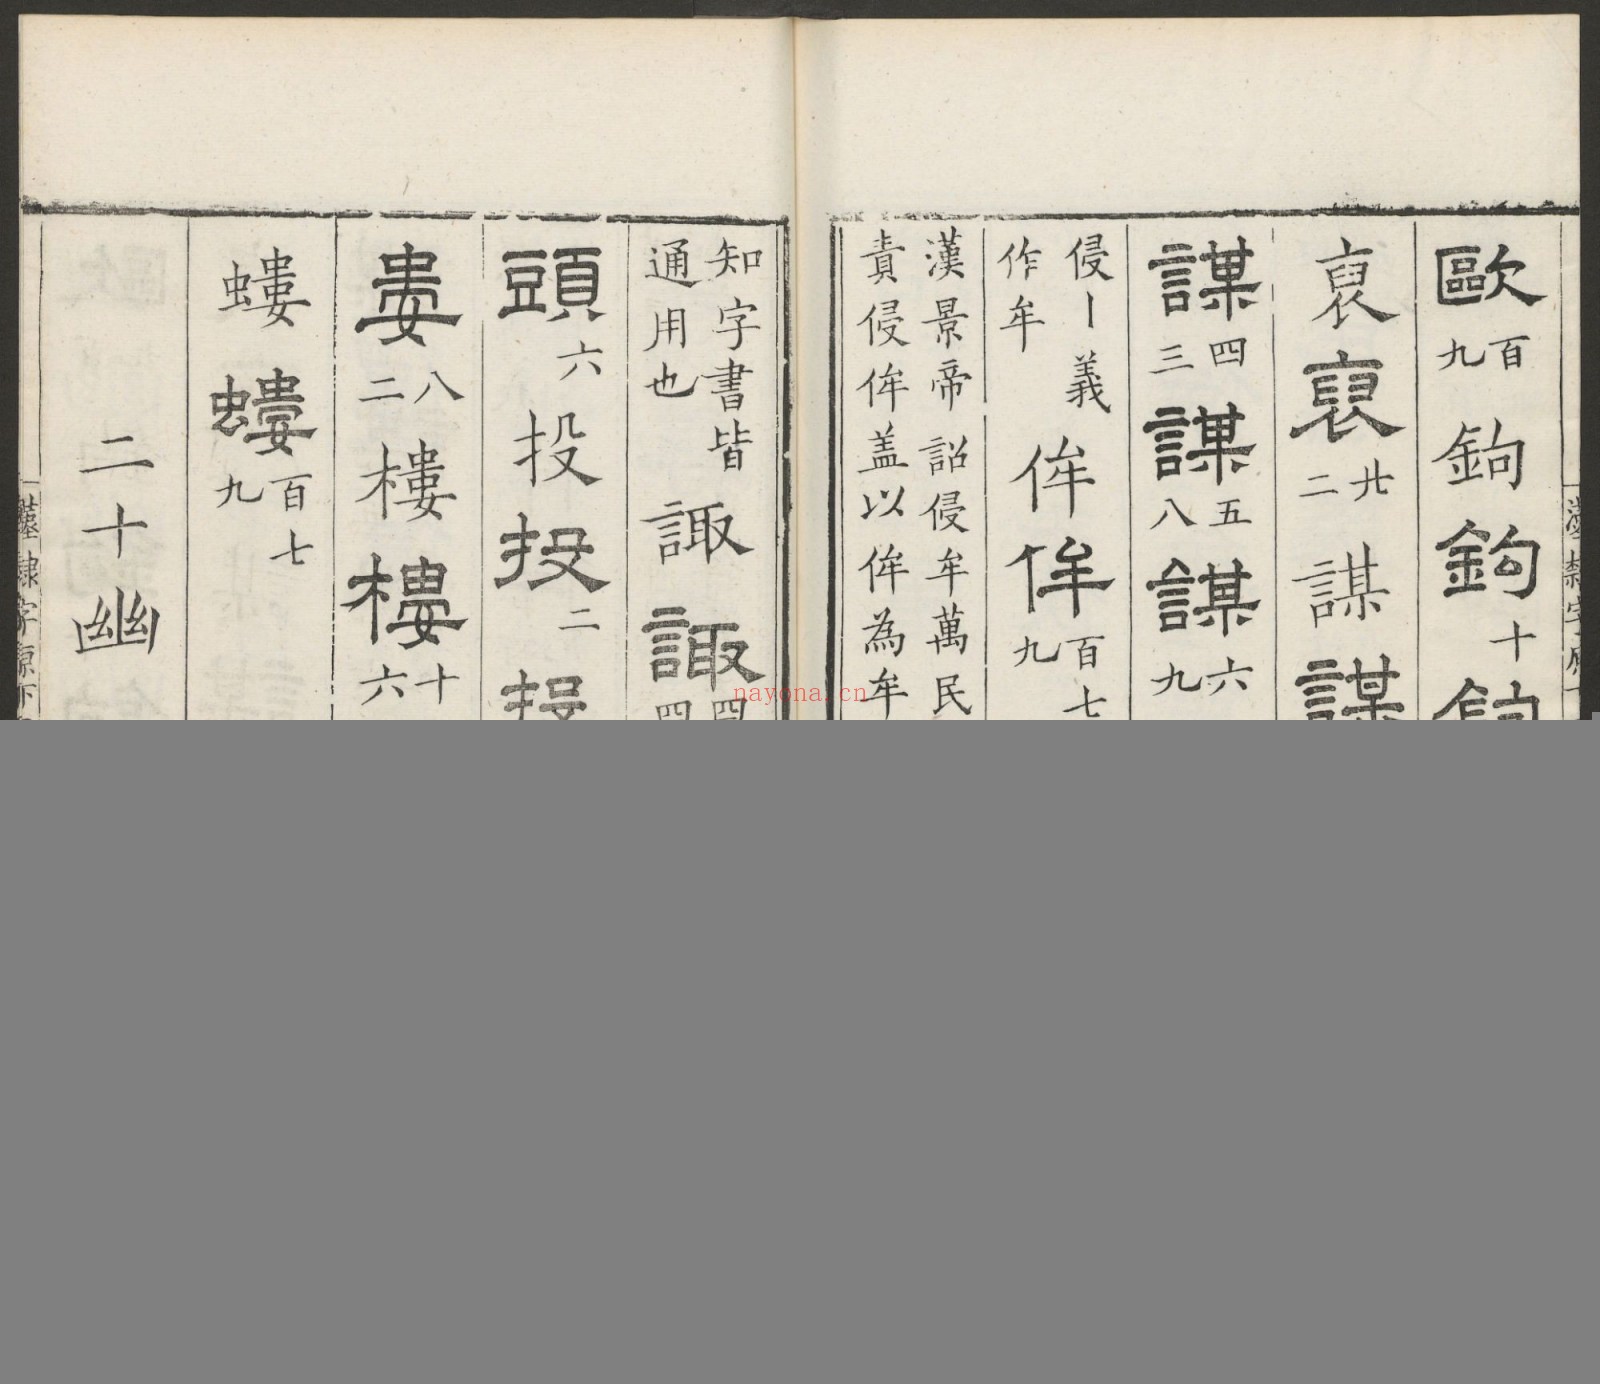 歐 百九 鉤 鉤 十
裒 裒 廿二 謀 謀
謀 四三 謀 五八 謀 六九
侵丨義作牟 侔 侔 百七九
漢景帝詔侵牟萬民
責侵侔盖以侔為牟
知字書皆通用也 諏 諏 四四
頭 六 投 投 二
婁 八二 樓 樓 十六
螻 螻 百七九
二十幽
漢隸字源下
nayona.cn